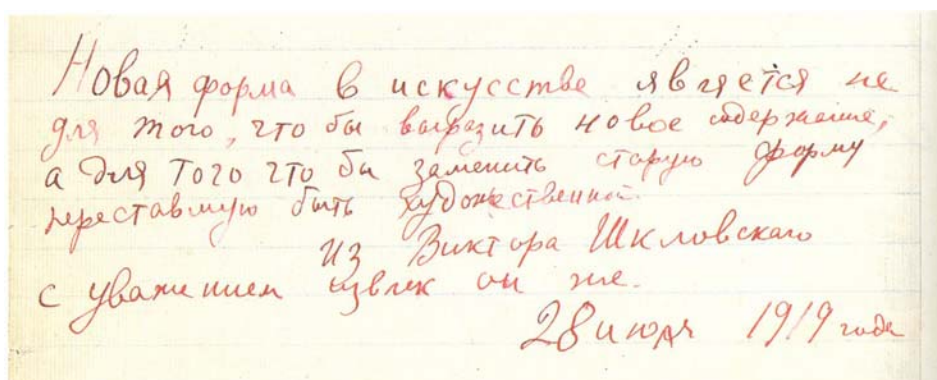 Новая форма в искусстве является не
для того, что бы выразить новое содержание,
а для того что бы заменить старую форму
переставшую быть художественной.
Из Виктора Шкловскаго
с уважением извлек он же.
28 июля 1919 года